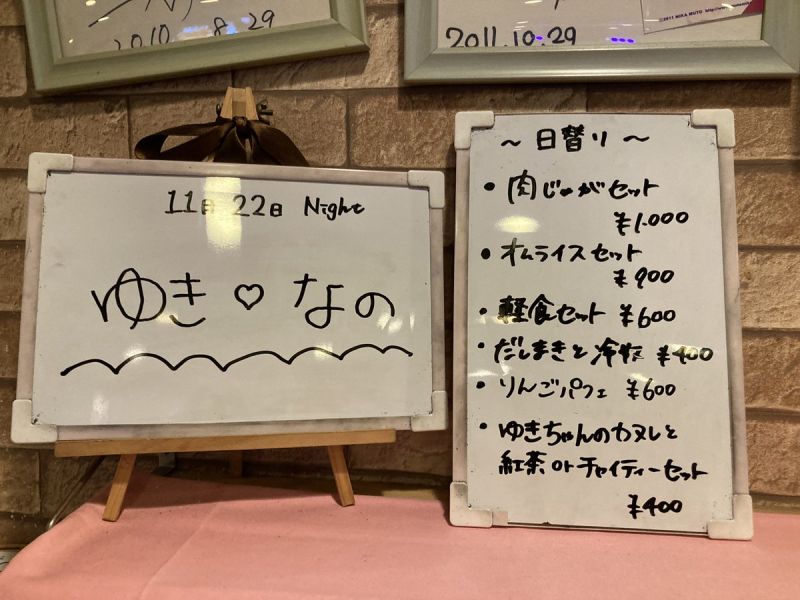 2010. 8. 29
2011.10.29
©2011 MIKA MUTO
11日 22日 Night
ゆき♡なの
～日替り～
・肉じゃがセット
¥1.000
・オムライスセット
¥900
・軽食セット ¥600
・だしまきと冷奴 ¥400
・りんごパフェ ¥600
・ゆきちゃんのカヌレと
紅茶orチャイティーセット
¥400